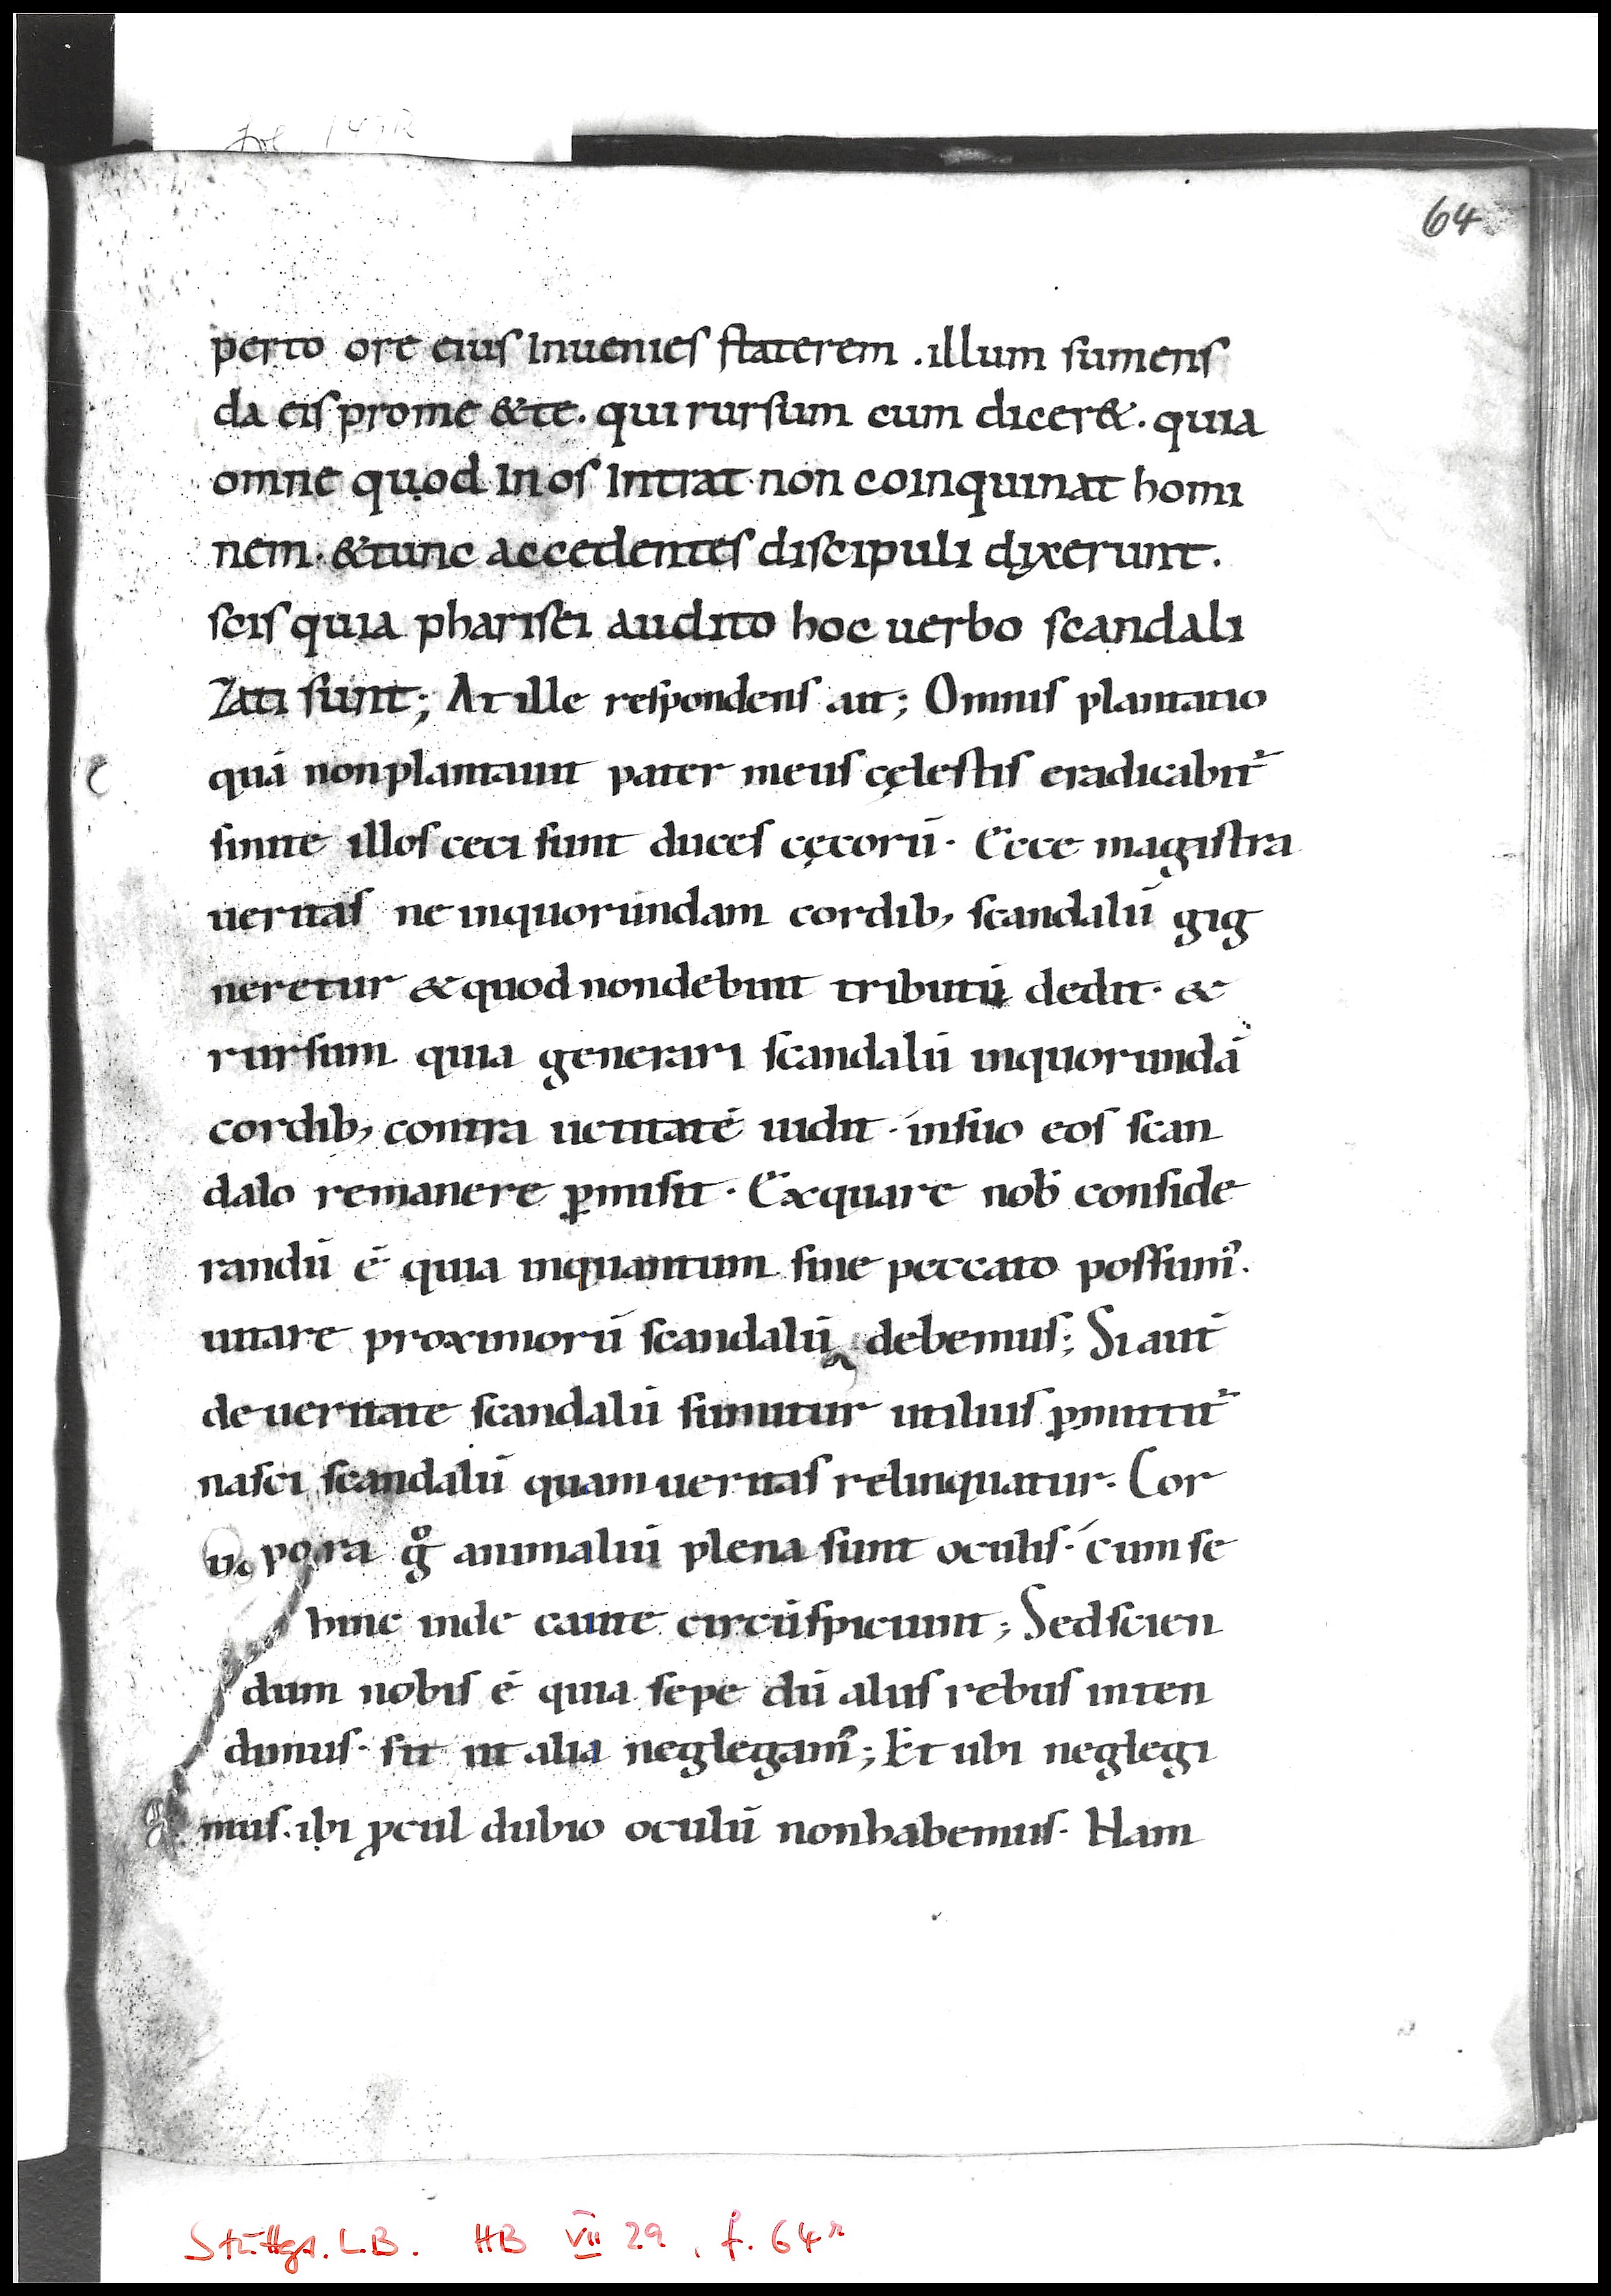 64
perto ore eius Inuenies staterem . illum sumens
da eis prome &te. qui rursum cum dicer&. quia
omne quod In os Intrat. non coinquinat homi
nem. &tunc accedentes discipuli dixerunt.
scis quia pharisei audito hoc uerbo scandali
Zati sunt; At ille respondens ait; Omnis plantatio
quā non plantauit pater meus cęlestis eradicabit᷑
sinite illos ceci sunt duces cęcorū. Ecce magistra
ueritas ne inquorundam cordib; scandalū gig
neretur & quod non debuit tributū dedit. &
rursum quia generari scandalū inquorundā
cordib; contra ueritatē uidit. insuo eos scan
dalo remanere ꝑmisit. Exquare nob̄ conside
randū ē quia inquantum sine peccato possum᷒.
uitare proximorū scandalū debemus; Si aut̄
de ueritate scandalū sumitur utilius ꝑmittit᷑
nasci scandalū quam ueritas relinquatur. Cor
pora gͦ animaliū plena sunt oculis. cum se
hinc inde caute circūspiciunt; Sed scien
dum nobis ē quia sepe dū aliis rebus inten
dimus. fit ut alia neglegam᷒; Et ubi neglegi
mus. ibi ꝓcul dubio oculū non habemus. Nam
Stuttga. L.B. HB VII 29, f. 64r